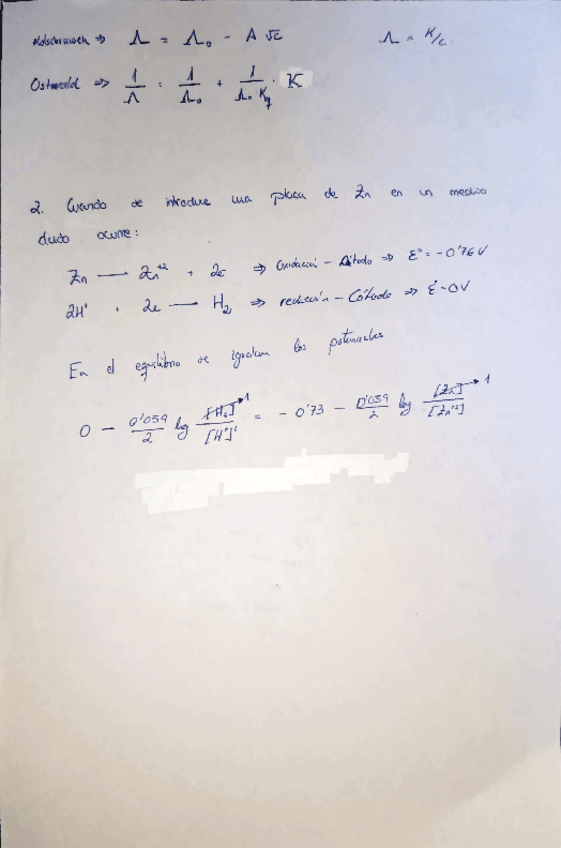 Kolschrausch => Λ = Λ₀ - A √c Λ = K/c
Ostwald => 1/Λ = 1/Λ₀ + 1/(Λ₀ Kd) · K
2. Cuando se introduce una placa de Zn en un medio
ácido ocurre:
Zn → Zn⁺² + 2e => Oxidación - Ánodo => Ɛ° = -0'76 V
2H⁺ + 2e → H₂ => reducción - Cátodo => Ɛ = 0V
En el equilibrio se igualan los potenciales
0 - 0'059/2 log [H₂]/[H⁺]² = - 0'73 - 0'059/2 log [Zn]/[Zn⁺²]